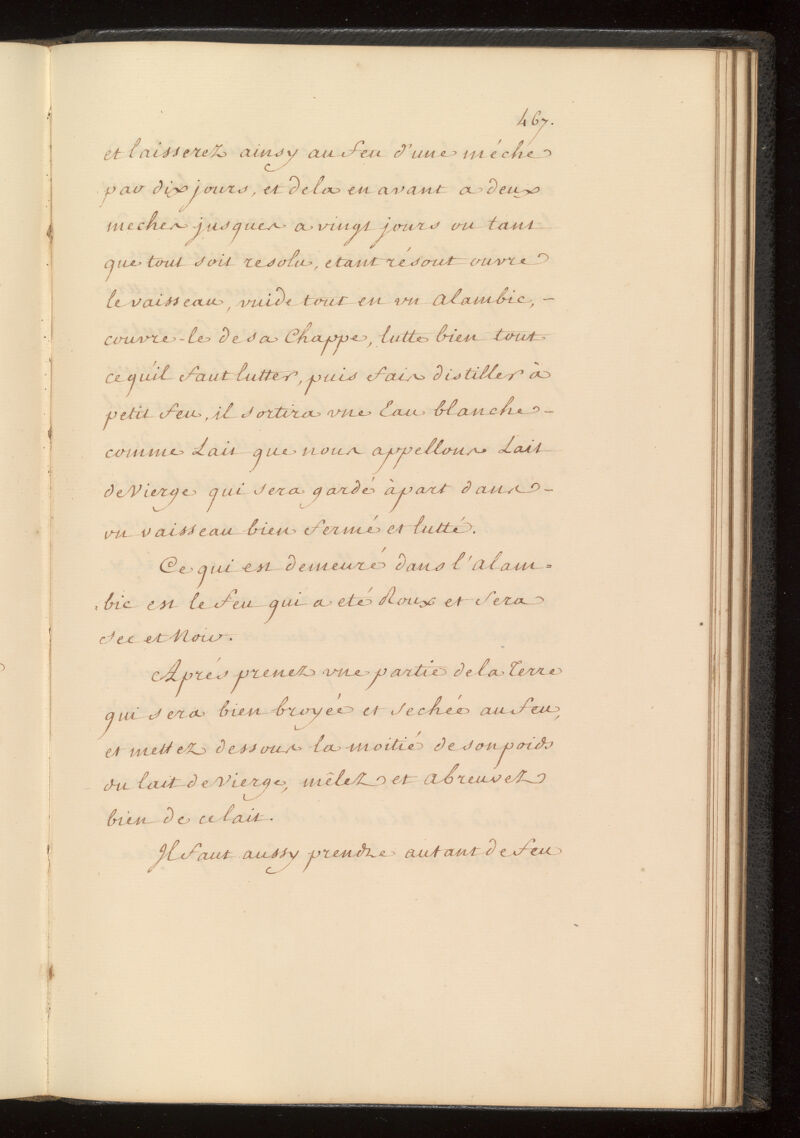 467.
et laisserez ainsy au feu d'une méche
par dix jours, et dela en avant a deux
meches jusques a vingt jours ou tant
que tout soit resolu, etant résout ouvre
le vaisseau, vuide tout en vn Alambic, -
couvre-le de sa Chappe, lutte bien tout
ce qu'il faut lutter, puis fais distiller à
petit feu, il sortira vne Eau blanche -
comme Lait que nous appellons Lait
de Vierge qui sera gardé àpart dans -
vn vaisseau bien fermé et lutté.
Ce qui est demeuré dans l'Alam=
bic est le feu qui a eté Roux et sera
sec et Noir.
Aprés prenez vne partie de la Terre
qui sera bien broyée et sechée au feu,
et mettez dessous la moitié de son poids
du lait de Vierge, mêlez et Abreuvez
bien de ce lait.
Il faut aussy prendre autant de feu